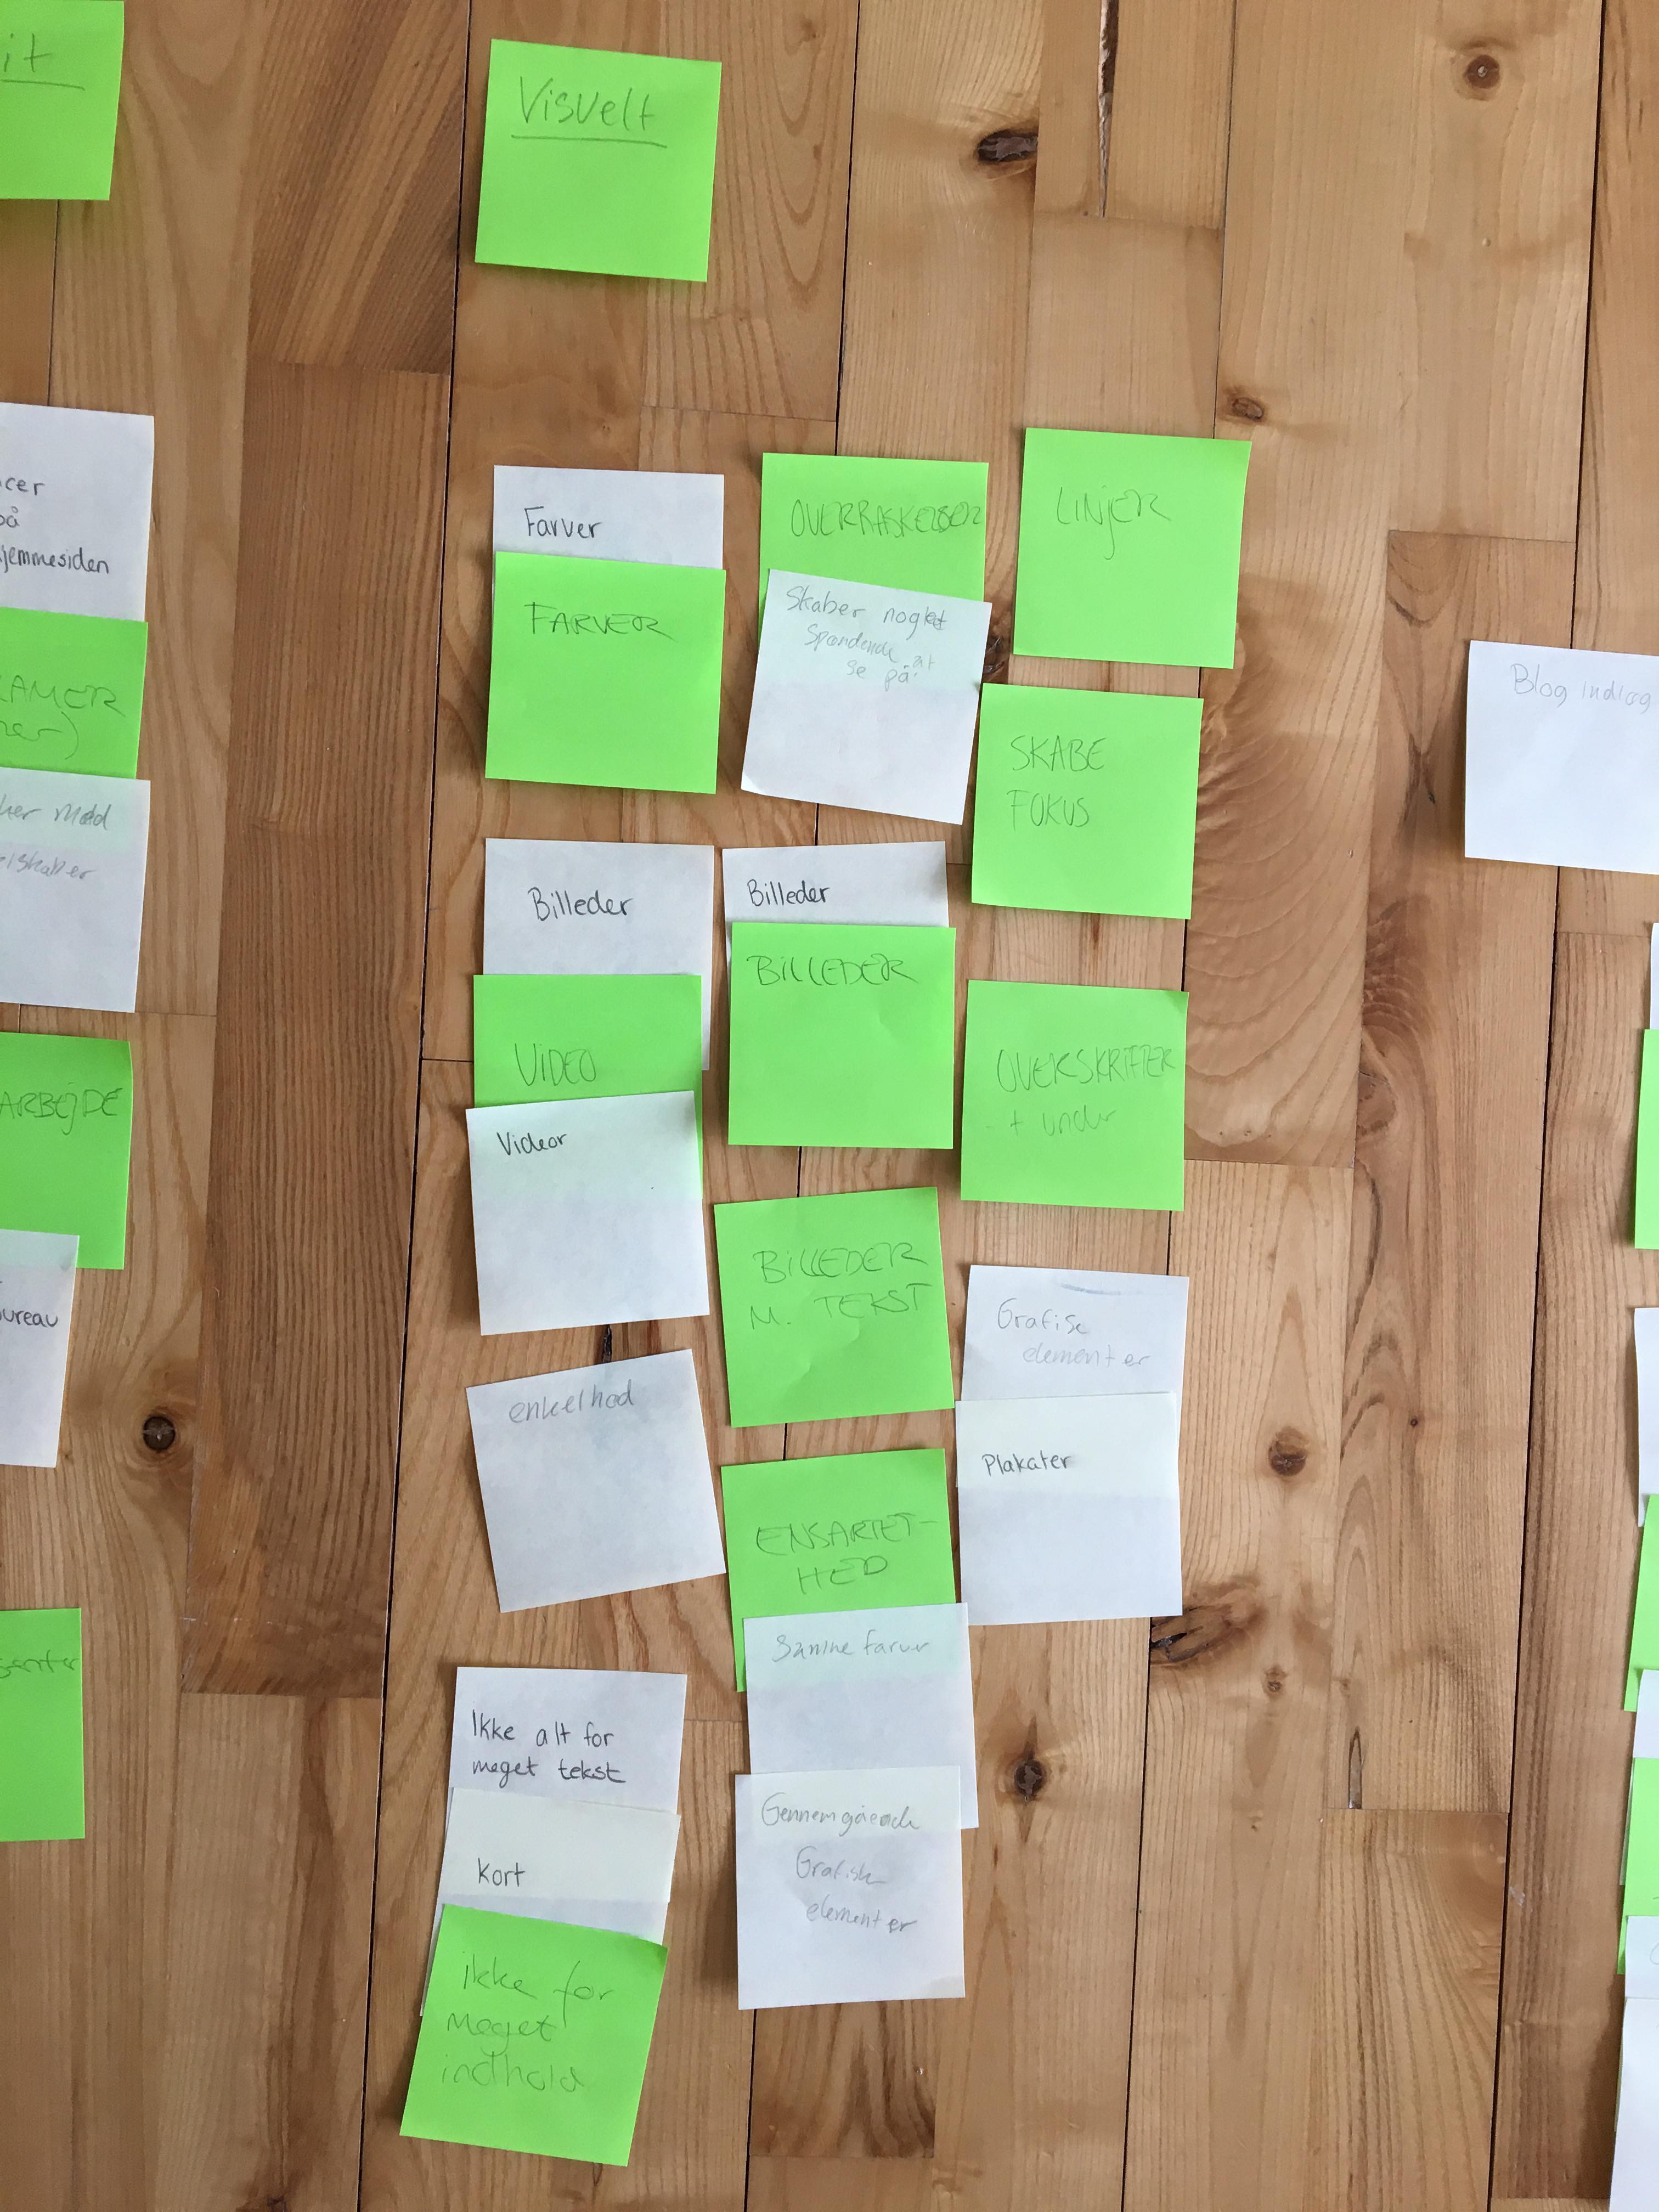 it
Visuelt
cer
på
jemmesiden
her med
ARBEJDE
ureau
Farver
FARVER
Billeder
VIDEO
Videor
enkelhed
Ikke alt for
meget tekst
Kort
ikke for
meget
indhold
OVERRASKELSER
Skaber noglet
Spændende at
se på.
Billeder
BILLEDER
BILLEDER
M. TEKST
ENSARTET-
HED
Samme farver
Gennemgående
Grafisk
elementer
LINJER
SKABE
FOKUS
OVERSKRIFTER
+ under
Grafisk
elementer
Plakater
Blog indlæg